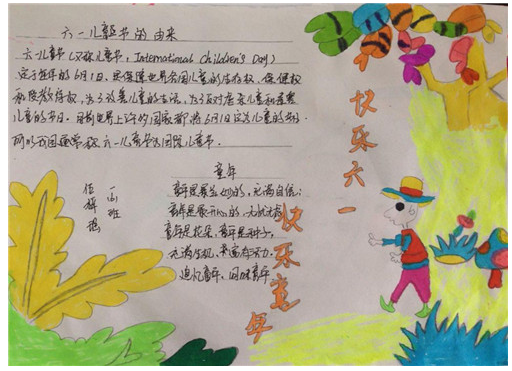 六一儿童节的由来
六一儿童节(又称儿童节, International Children's Day)
定于每年的6月1日。为保障世界各国儿童的生存权、保健权
和受教育权,为了改善儿童的生活,为了反对虐杀儿童和毒害
儿童的节日。目前世界上许多的国家都将6月1日定为儿童的节日。
所以我国通常称六一儿童节为国际儿童节。
快乐六一
童年
童年是
童年是最开心的,无忧无虑
童年是花朵,童年是种子,
充满生机,
追忆童年,回味童年
快乐童年